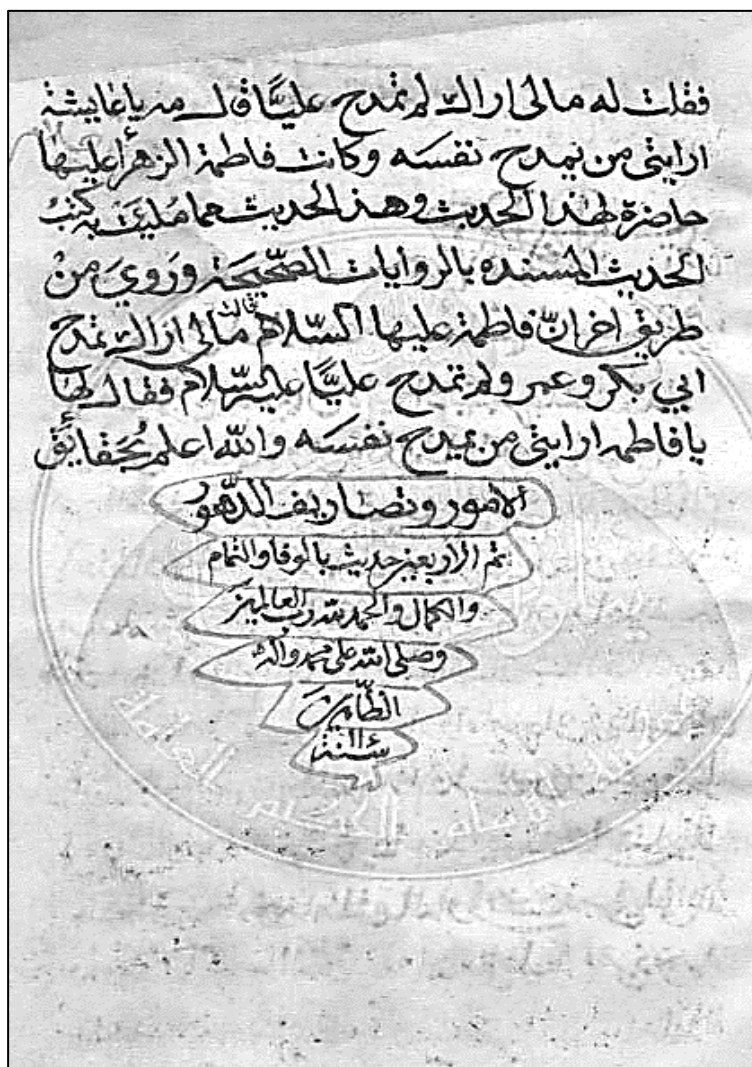 فقلت له مالى اراك لم تمدح عليًّا قال مه يا عايشة
ارايتى من يمدح نفسه وكانت فاطمة الزهرأ عليها
حاضرة لهذا الحديث وهذ الحديث مما مليت به كتب
الحديث المسنده بالروايات الصّحيحة وروي من
طريق اخر انّ فاطمة عليها السّلام قالت مالى اراك تمدح
ابي بكر وعمر ولم تمدح عليًّا عليه السّلام فقال لها
يا فاطمه ارايتى من يمدح نفسه والله اعلم بحقايق
الامور وتصاريف الدّهور
تم الاربعين حديث بالوفا والتمام
والكمال والحمد لله رب العالمين
وصلى الله على محمد واله
الطّاهرين